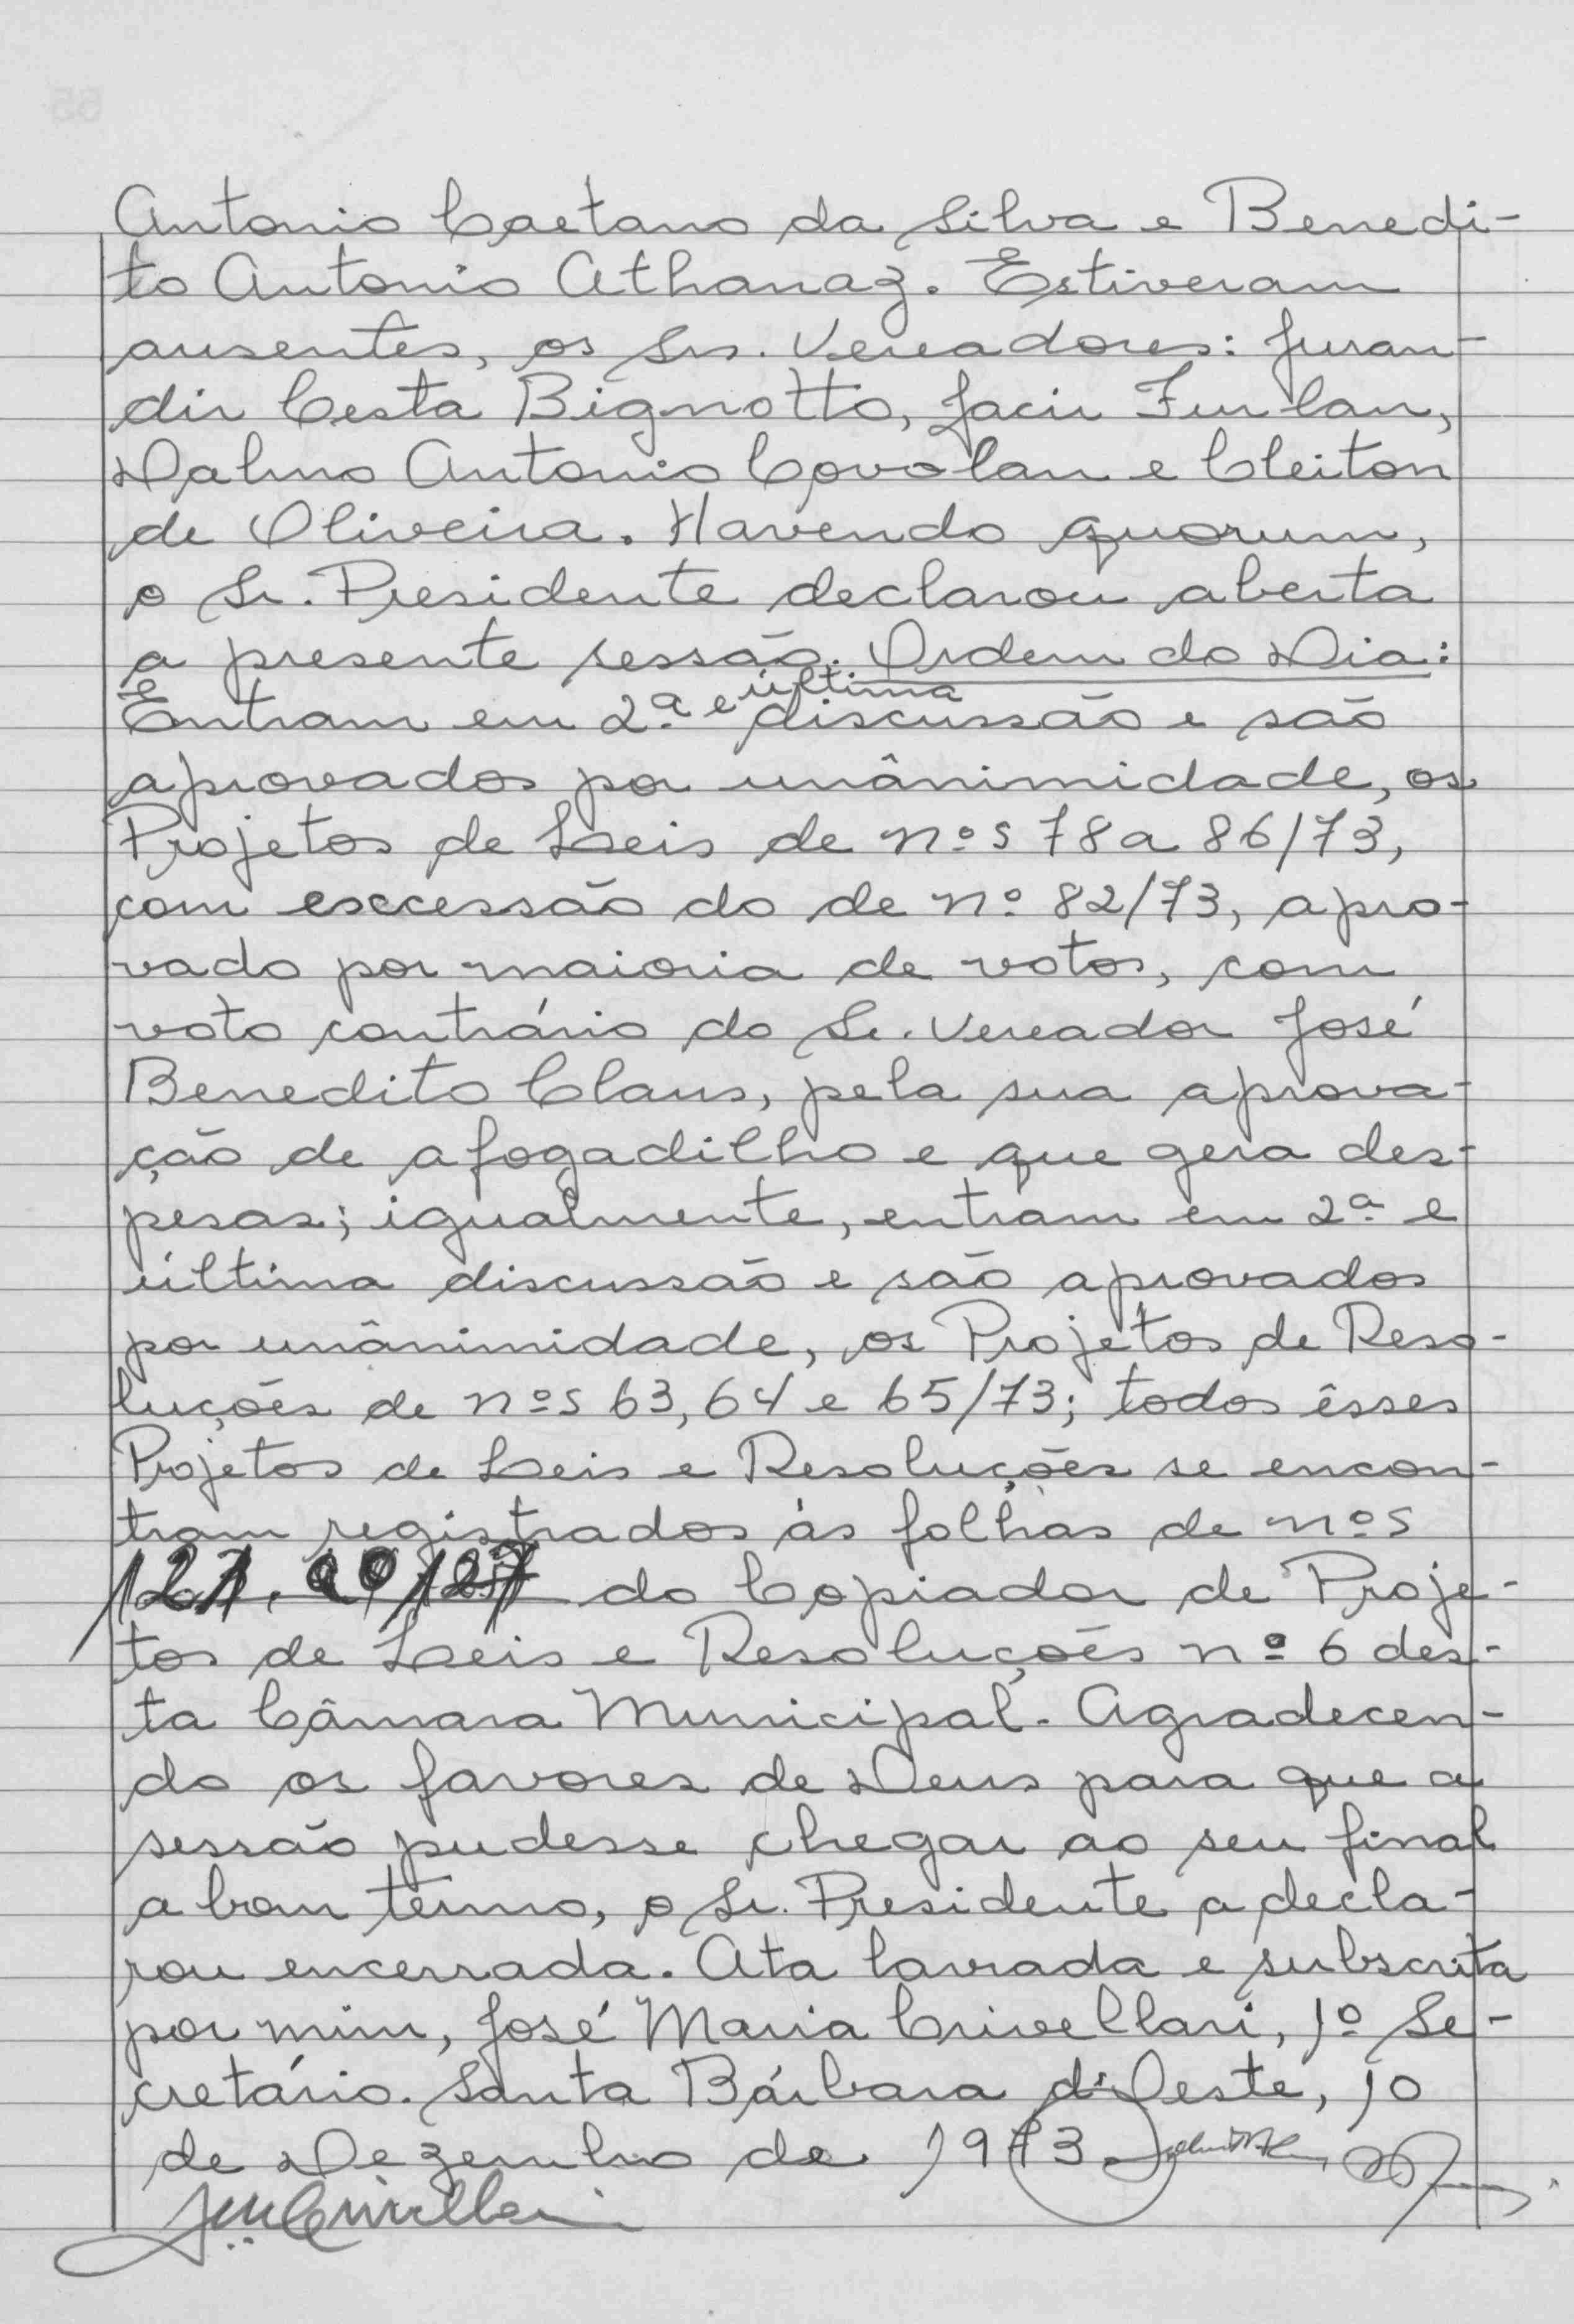 Antonio Caetano da Silva e Benedi-
to Antonio Athanaz. Estiveram
ausentes, os Srs. Vereadores: Juran-
dir Cesta Bignotto, Jacir Furlan,
Dalmo Antonio Covolan e Cleiton
de Oliveira. Havendo quorum,
o Sr. Presidente declarou aberta
a presente sessão. Ordem do Dia:
Entram em 2ª e última discussão e são
aprovados por unânimidade, os
Projetos de Leis de nºs 78 a 86/73,
com esccessão do de nº 82/73, apro-
vado por maioria de votos, com
voto contrário do Sr. Vereador José
Benedito Claus, pela sua aprova-
ção de afogadilho e que gera des-
pesas; igualmente, entram em 2ª e
última discussão e são aprovados
por unânimidade, os Projetos de Reso-
luções de nºs 63, 64 e 65/73; todos êsses
Projetos de Leis e Resoluções se encon-
tram registrados às folhas de nºs
do Copiador de Proje-
tos de Leis e Resoluções nº 6 des-
ta Câmara Municipal. Agradecen-
do os favores de Deus para que a
sessão pudesse chegar ao seu final
a bom termo, o Sr. Presidente a decla-
rou encerrada. Ata lavrada e subscrita
por mim, José Maria Crivellari, 1º Se-
cretário. Santa Bárbara d'Oeste, 10
de Dezembro de 1973.